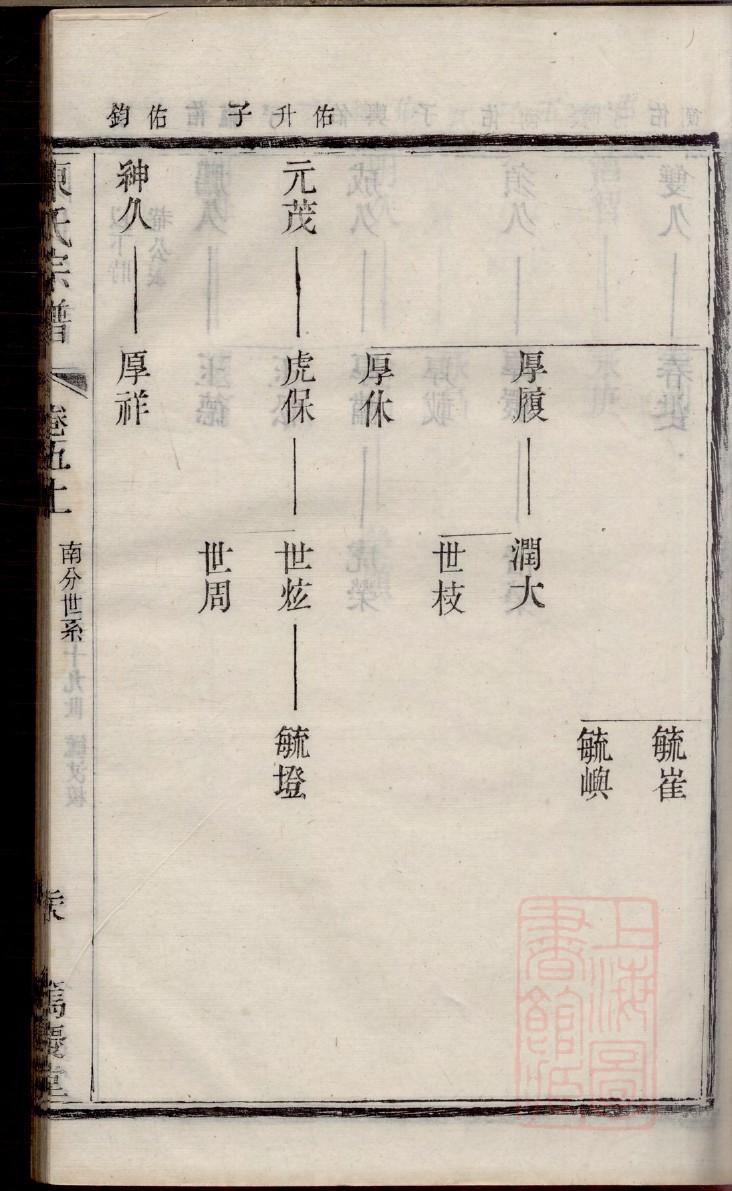 佑升子
佑鈞
毓崔
毓嶼
厚履
潤大
世枝
厚休
元茂
虎保
世炫
毓墱
世周
神久
厚祥
氏宗譜
卷五十
南分世系
上海圖書館藏